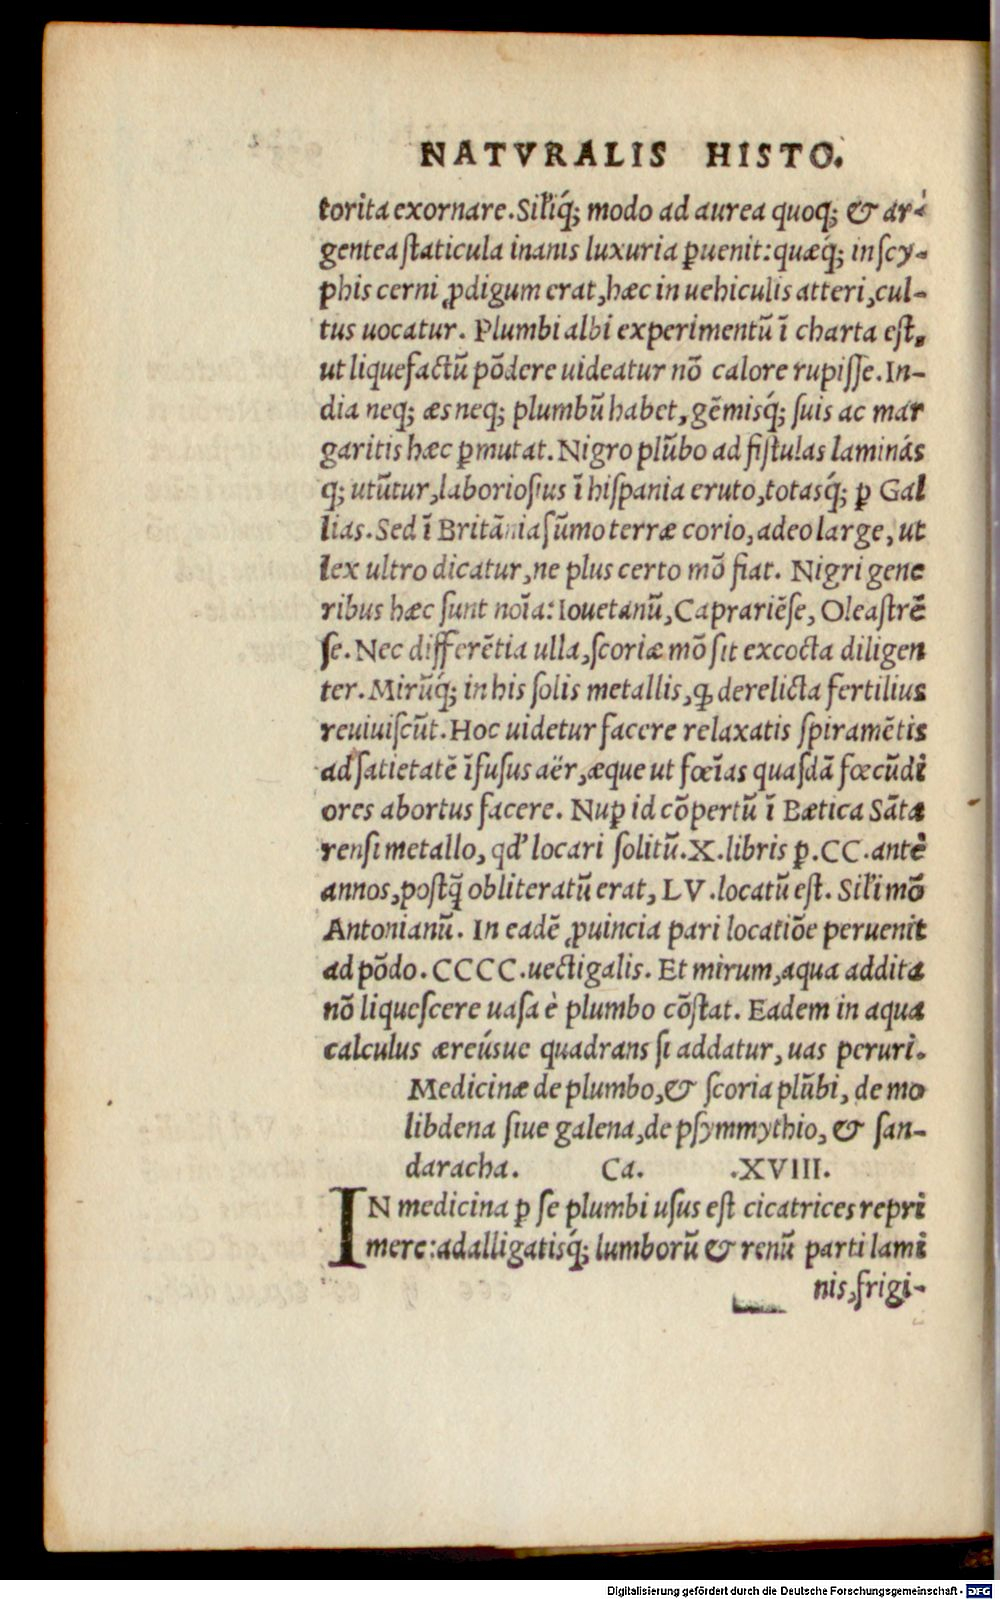 NATVRALIS HISTO.
torita exornare. Sil'iq́; modo ad aurea quoq; & ar-
gentea staticula inanis luxuria ꝑuenit: quæq́; in scy-
phis cerni ꝓdigum erat, hæc in uehiculis atteri, cul-
tus uocatur. Plumbi albi experimentũ ĩ charta est,
ut liquefactũ põdere uideatur nõ calore rupisse. In-
dia neq; æs neq; plumbũ habet, gẽmisq́; suis ac mar
garitis hæc ꝑmutat. Nigro plũbo ad fistulas laminás
q; utũtur, laboriosius ĩ hispania eruto, totasq́; ꝑ Gal
lias. Sed ĩ Britãnia sũmo terræ corio, adeo large, ut
lex ultro dicatur, ne plus certo mõ fiat. Nigri gene
ribus hæc sunt noĩa: Iouetanũ, Caprariẽse, Oleastrẽ
se. Nec differẽtia ulla, scoriæ mõ sit excocta diligen
ter. Mirũq́; in his solis metallis, ꝙ derelicta fertilius
reuiuiscũt. Hoc uidetur facere relaxatis spiramẽtis
ad satietatẽ ĩfusus aër, æque ut fœĩas quasdã fœcũdi
ores abortus facere. Nuꝑ id cõpertũ ĩ Bætica Sãta
rensi metallo, qd' locari solitũ. X. libris ꝑ. CC. antè
annos, postq̃ obliteratũ erat, LV. locatũ est. Sil'i mõ
Antonianũ. In eadẽ ꝓuincia pari locatiõe peruenit
ad põdo. CCCC. uectigalis. Et mirum, aqua addita
nõ liquescere uasa è plumbo cõstat. Eadem in aqua
calculus æreúsue quadrans si addatur, uas peruri.
Medicinæ de plumbo, & scoria plũbi, de mo
libdena siue galena, de psymmythio, & san-
daracha. Ca. .XVIII.
IN medicina ꝑ se plumbi usus est cicatrices repri
mere: adalligatisq́; lumborũ & renũ parti lami
nis, frigi-
Digitalisierung gefördert durch die Deutsche Forschungsgemeinschaft - DFG